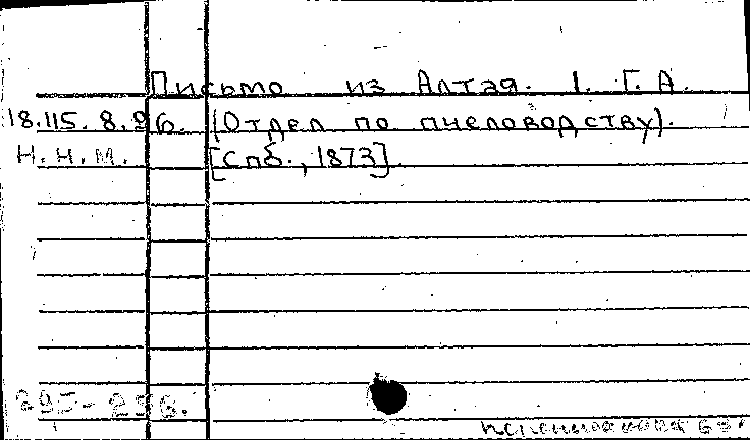 Письмо из Алтая. 1. Г. А.
18.115.8.96. (Отдел по пчеловодству).
Н.Н.М. [Спб., 1873].
295-296.